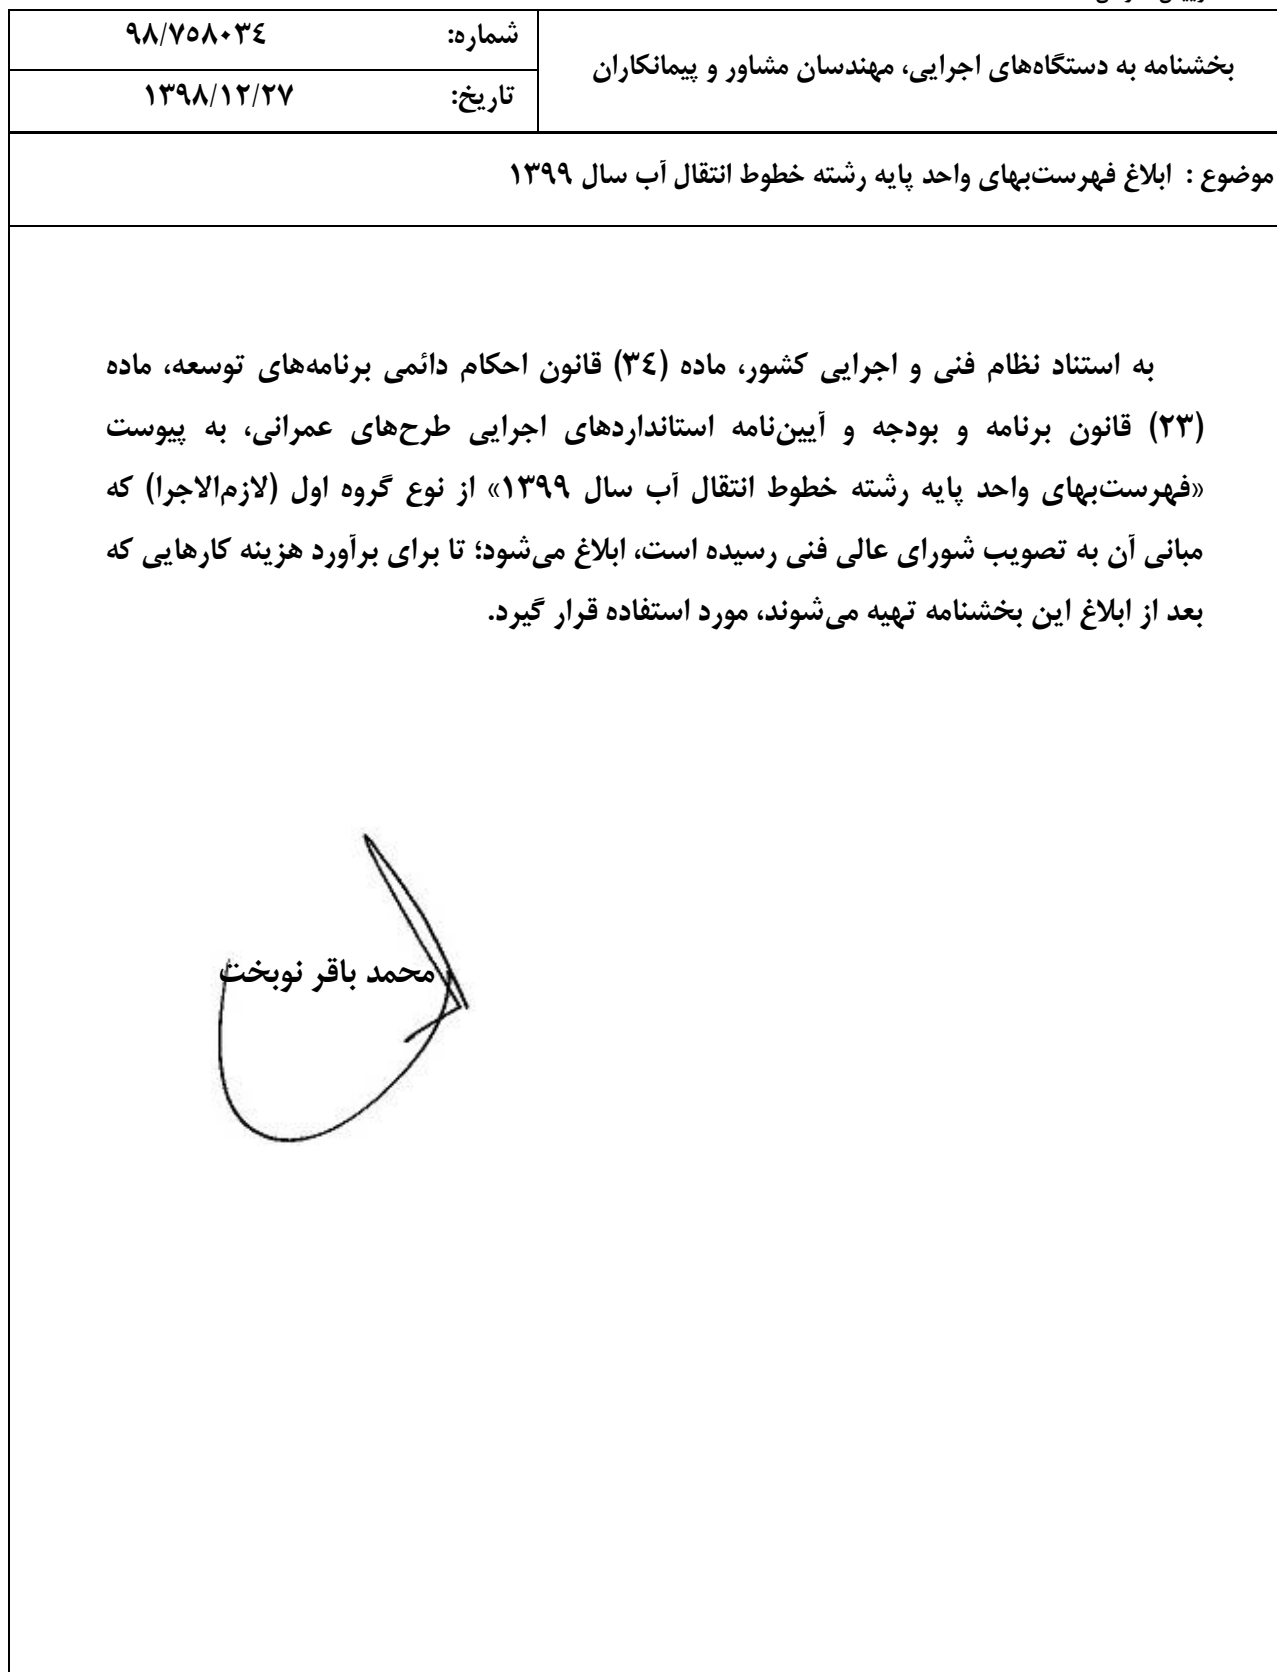 بخشنامه به دستگاه‌های اجرایی، مهندسان مشاور و پیمانکاران
شماره: ۹۸/۷۵۸۰۳۴
تاریخ: ۱۳۹۸/۱۲/۲۷
موضوع : ابلاغ فهرست‌بهای واحد پایه رشته خطوط انتقال آب سال ۱۳۹۹
به استناد نظام فنی و اجرایی کشور، ماده (۳۴) قانون احکام دائمی برنامه‌های توسعه، ماده
(۲۳) قانون برنامه و بودجه و آیین‌نامه استانداردهای اجرایی طرح‌های عمرانی، به پیوست
«فهرست‌بهای واحد پایه رشته خطوط انتقال آب سال ۱۳۹۹» از نوع گروه اول (لازم‌الاجرا) که
مبانی آن به تصویب شورای عالی فنی رسیده است، ابلاغ می‌شود؛ تا برای برآورد هزینه کارهایی که
بعد از ابلاغ این بخشنامه تهیه می‌شوند، مورد استفاده قرار گیرد.
محمد باقر نوبخت